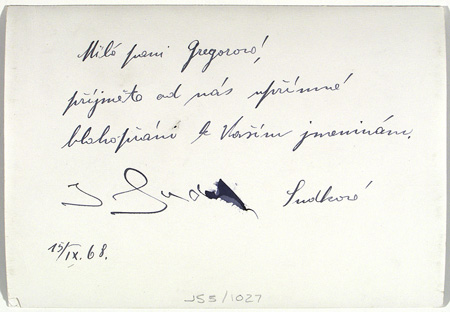 Milá paní Gregorová,
přijměte od nás upřímné
blahopřání k Vašim jmeninám.
J Sudek Sudkové
15/IX. 68.
JS5/1027